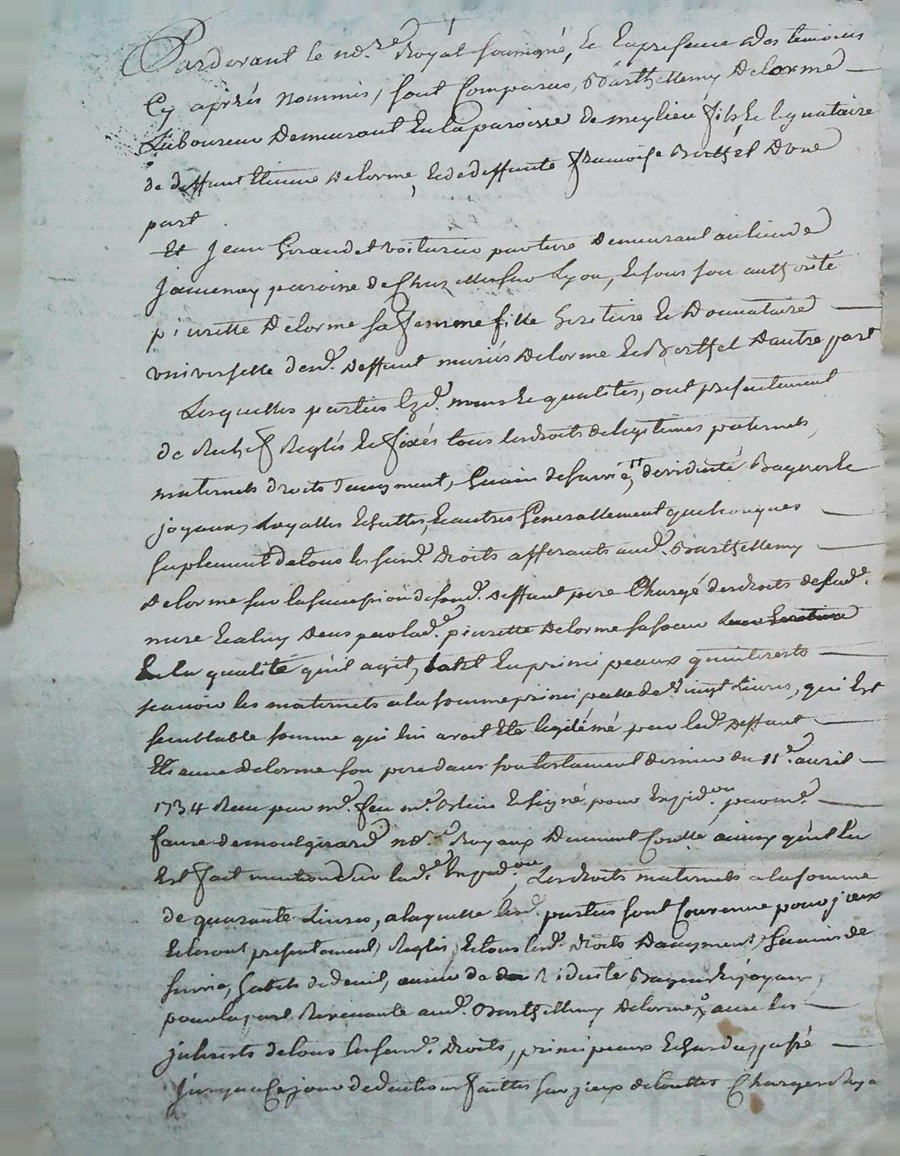 Pardevant le no.re Royal soussigné, Et En presence des temoins
Cy aprés nommés, sont Comparus, Barthellemy Delorme
Laboureur Demeurant En la paroisse de meylieu fils Et legataire
de deffunt Etienne Delorme, Et de deffunte françoise Berthet D'une
part
Et Jean Giraudet voiturier par terre demeurant au lieu de
Jamenay paroisse de Chazelles sur Lyon, Et sous son authorité
pierrette Delorme sa femme fille heritiere Et Donnataire
universelle desd. deffunt mariés Delorme Et Berthet D'autre part
Lesquelles parties Ezd. noms Et qualités, ont presentement
de Rechef Reglés Et fixés tous les droits de legitimes paternels,
maternels droits d'augment, Gain de survie, Bagues Et
joyaux, Et autres Generallement quelconques
suplement de tous lesd. Droits afferants aud. Barthellemy
Delorme sur la succession dud. deffunt pere Chargé des droits de sad.
mere Et a luy deus par lad. pierrette Delorme sa soeur
En la qualité qu'il agit, tant En principeaux qu'interests
scavoir les maternels a la somme principalle de vingt Livres, qui Est
semblable somme qui lui avoit Eté legitémé par led. deffunt
Etienne Delorme son pere dans son testament dernier du 11e. avril
1734 Receu par me. feu me. Et signé pour Expéd.on par me.
faure demontgirard no.re Royaux Deument Conllé ainsy qu'il En
Est fait mention sur lad. Expéd.on, Les droits maternels a la somme
de quarante Livres, a laquelle lesd. parties sont Convenue pour jceux
Et Les ont presentement Reglés, Et tous lesd. Droits D'augment, Gains de
survie, habits de deuil, année de viduité Bagues Et joyaux,
pour la part Revenante aud. Barthellemy Delorme, avec les
jnterests de tous lesd. Droits, principeaux Et
jusqua Ce jour deduction faittes sur jceux de touttes Charges Roya